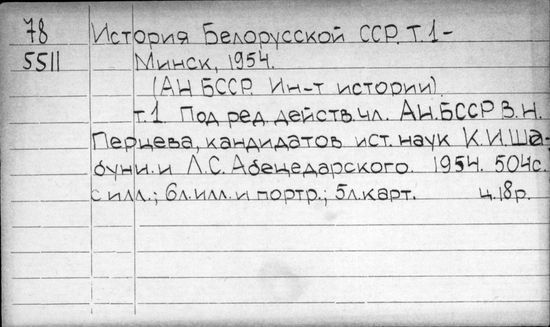 78 История Белорусской ССР. Т.1-
5511 Минск, 1954.
(АН БССР. Ин-т истории).
т.1. Под ред. действ. чл. АН.БССР В.Н.
Перцева, кандидатов ист. наук К.И.Ша-
буни и Л.С. Абецедарского. 1954. 504с.
с илл.; 6л.илл. и портр.; 5л.карт. ц.18р.